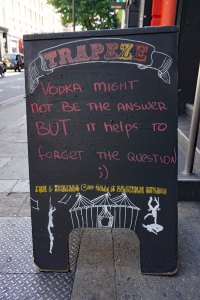 TRAPEZE
VODKA MIGHT
NOT BE THE ANSWER
BUT IT HELPS TO
FORGET THE QUESTION
;)